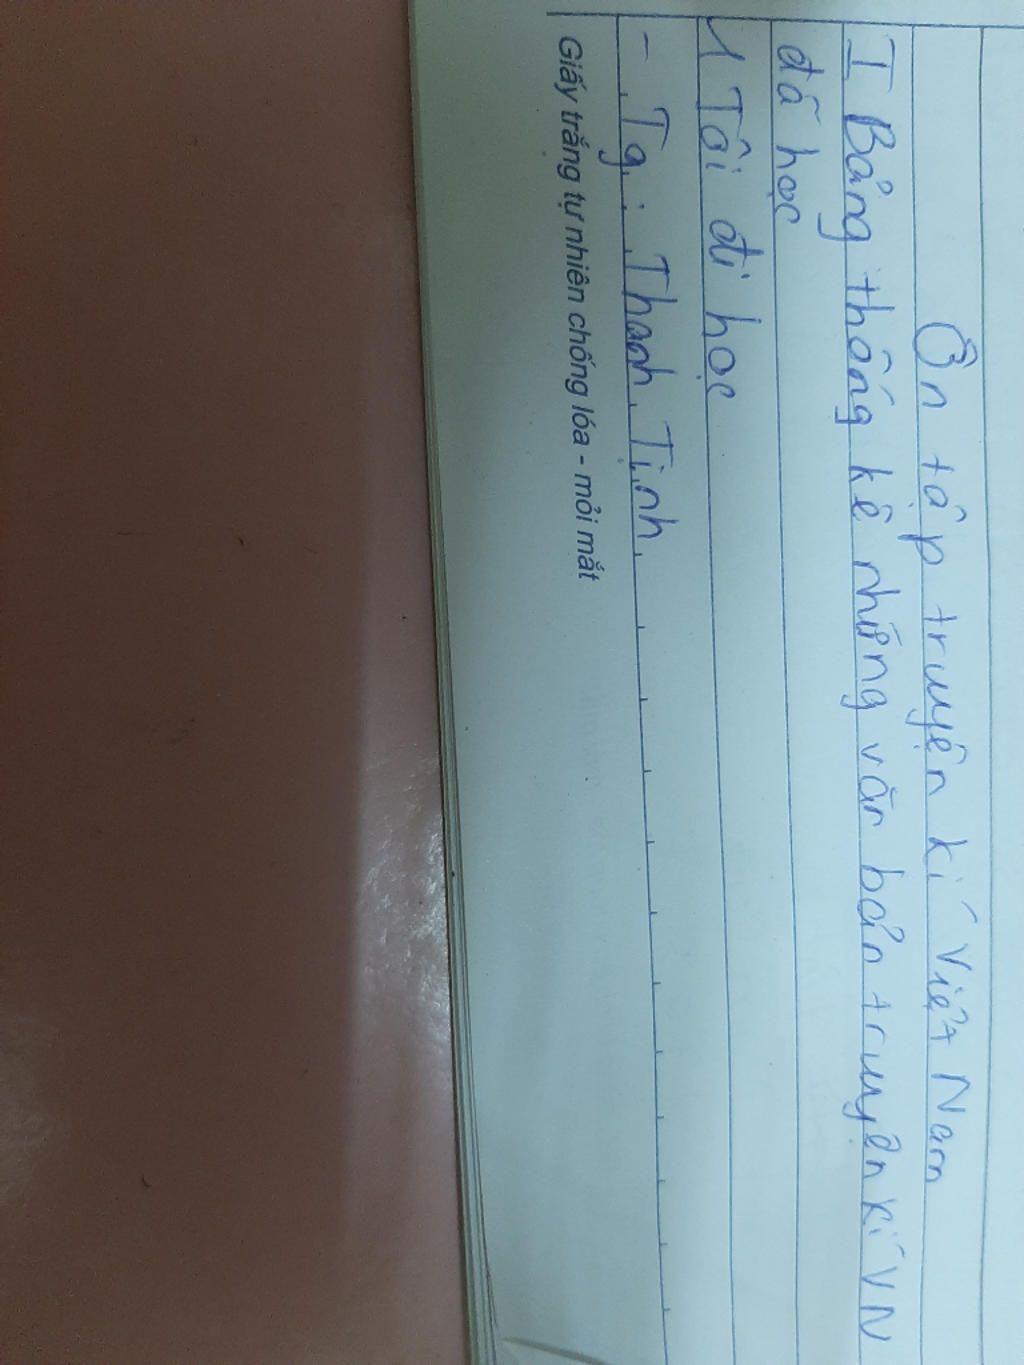 Ôn tập truyện kí Việt Nam
I Bảng thống kê những văn bản truyện kí VN
đã học
1 Tôi đi học
- Tg: Thanh Tịnh
Giấy trắng tự nhiên chống lóa - mỏi mắt